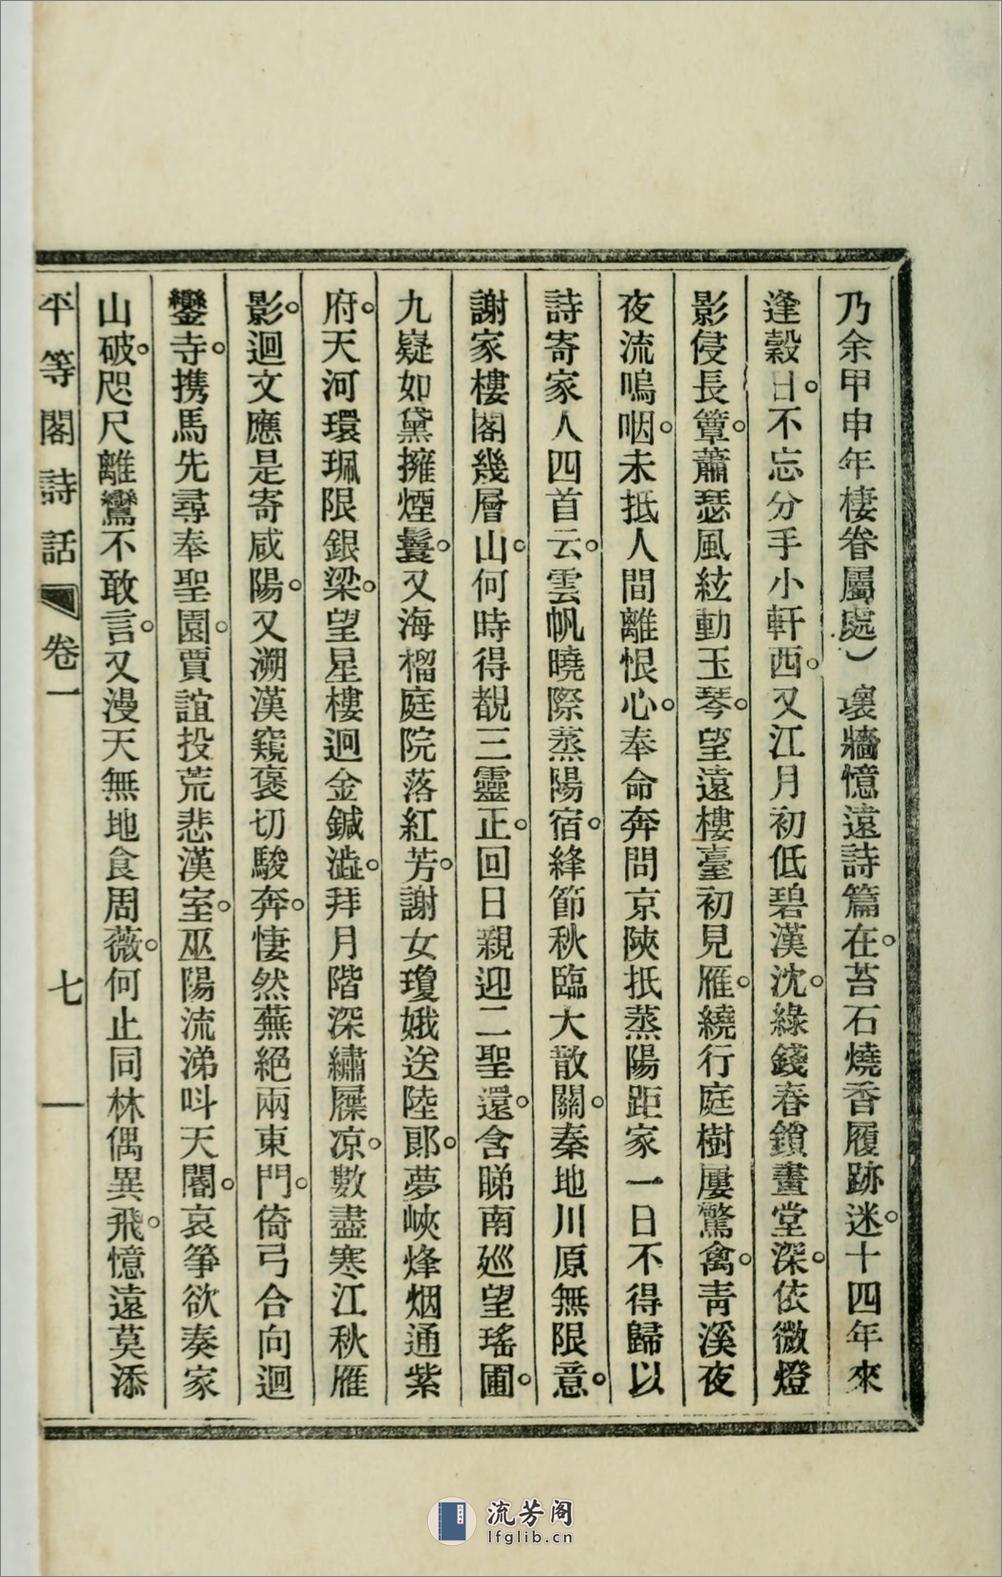 乃余甲申年棲眷屬處）壞牆憶遠詩篇在。苔石燒香履跡迷。十四年來
逢穀日。不忘分手小軒西。又江月初低碧漢沈。綠錢春鎖畫堂深。依微燈
影侵長簟。蕭瑟風絃動玉琴。望遠樓臺初見雁。繞行庭樹屢驚禽。靑溪夜
夜流嗚咽。未抵人間離恨心。奉命奔問京陝抵蒸陽距家一日不得歸以
詩寄家人四首云。雲帆曉際蒸陽宿。絳節秋臨大散關。秦地川原無限意。
謝家樓閣幾層山。何時得覩三靈正。回日親迎二聖還。含睇南巡望瑤圃。
九嶷如黛擁煙鬟。又海榴庭院落紅芳。謝女瓊娥送陸郞。夢峽烽烟通紫
府。天河環珮限銀梁。望星樓迥金鍼澁。拜月階深繡屧凉。數盡寒江秋雁
影。迴文應是寄咸陽。又溯漢窺褒切駿奔。悽然蕪絕兩東門。倚弓合向迴
鑾寺。攜馬先尋奉聖園。賈誼投荒悲漢室。巫陽流涕呌天閽。哀箏欲奏家
山破。咫尺離鸞不敢言。又漫天無地食周薇。何止同林偶異飛。憶遠莫添
平等閣詩話 卷一 七
流芳阁
lfglib.cn